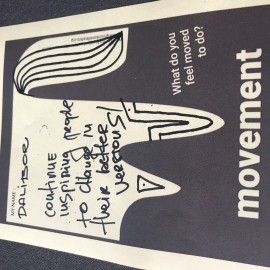 MY NAME
DALIBOR
CONTINUE
INSPIRING PEOPLE
TO CHANGE IN
THEIR BETTER
VERSIONS!
What do you
feel moved
to do?
movement